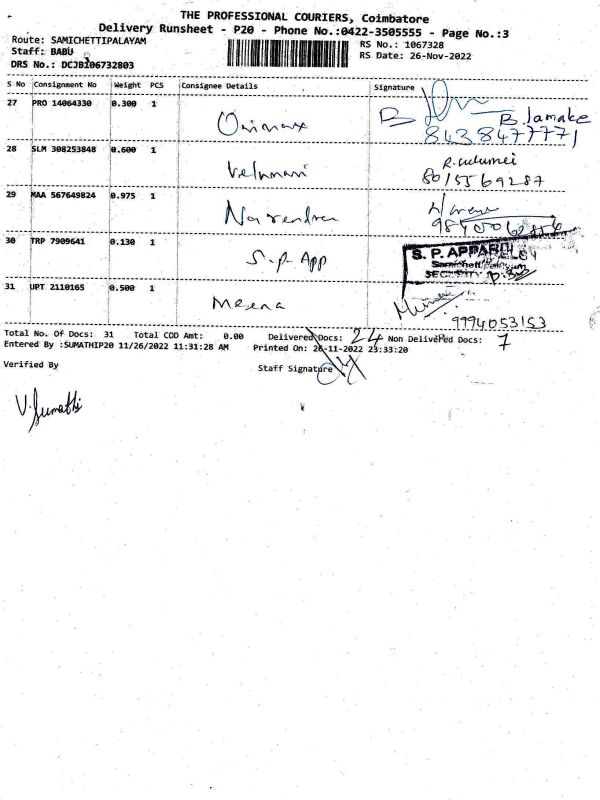 THE PROFESSIONAL COURIERS, Coimbatore
Delivery Runsheet - P20 - Phone No.:0422-3505555 - Page No.:3
Route: SAMICHETTIPALAYAM
RS No.: 1067328
Staff: BABU
RS Date: 26-Nov-2022
DRS No.: DCJBI06732803
S No Consignment No Weight PCS Consignee Details Signature
27 PRO 14064330 0.300 1
B. Jamake
8438477771
28 SLM 308253848 0.600 1 Velumani
8015569287
29 MAA 567649824 0.975 1 Narendra
30 TRP 7909641 0.130 1 S.P. App
S. P. APPAREL
SECURITY
31 UPT 2110165 0.500 1 Meena
9994053153
Total No. Of Docs: 31 Total COD Amt: 0.00 Delivered Docs: 24 Non Delivered Docs: 7
Entered By :SUMATHIP20 11/26/2022 11:31:28 AM Printed On: 26-11-2022 23:33:20
Verified By Staff Signature
V. Sumathi